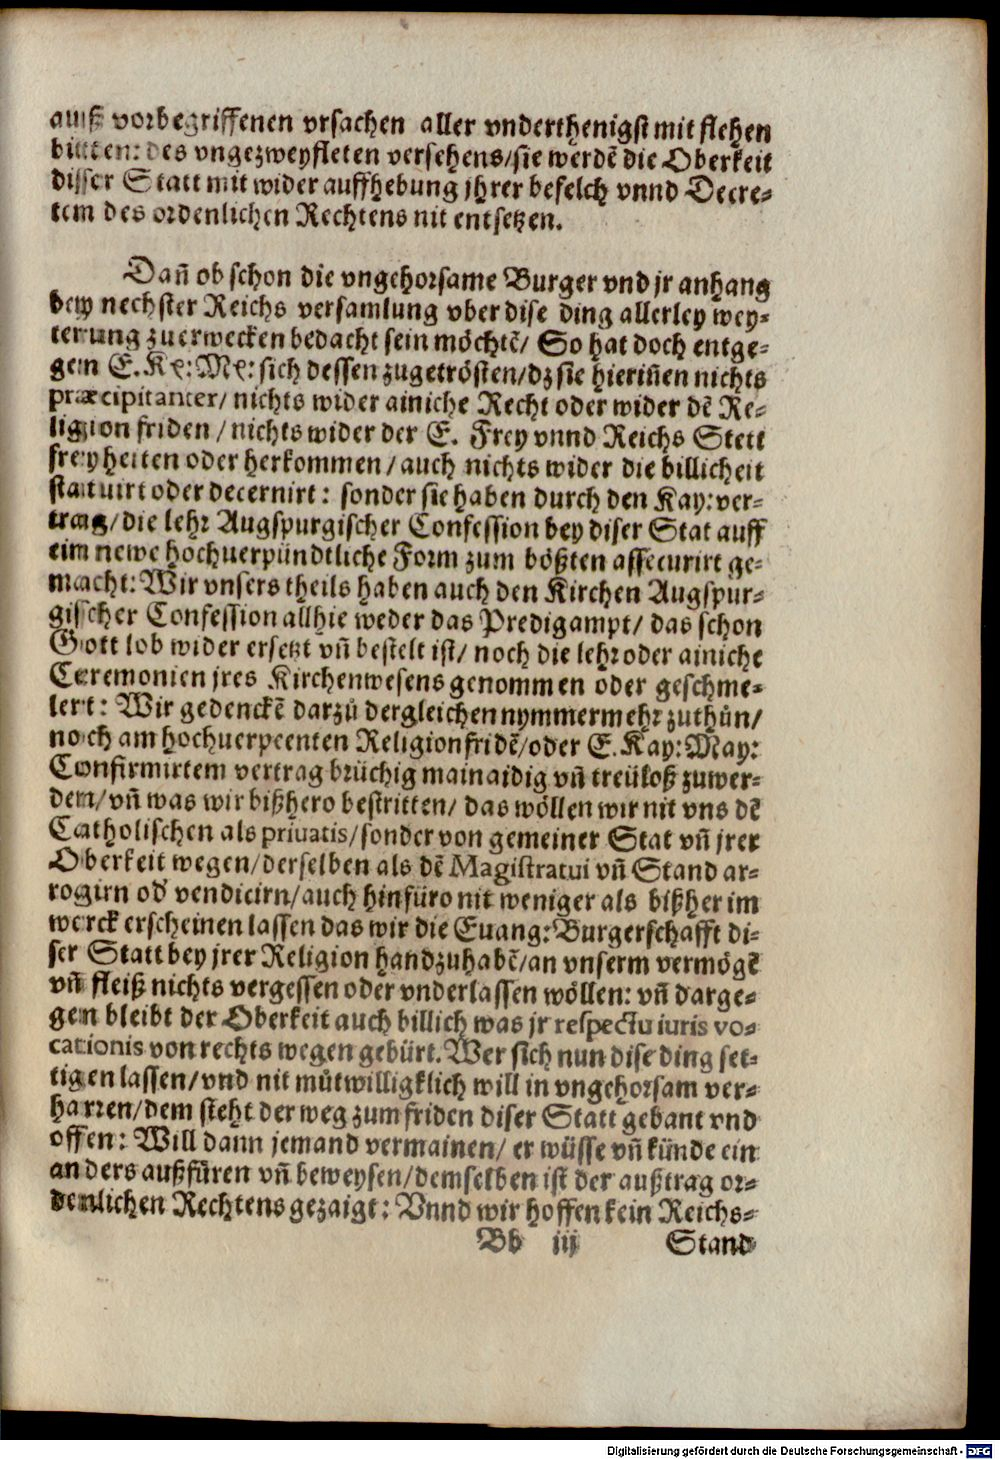 auß vorbegriffenen vrsachen aller vnderthenigst mit flehen
bitten: des vngezweyfleten versehens/sie werdē die Oberkeit
diser Statt mit wider auffhebung jhrer befelch vnnd Decre-
tem des ordenlichen Rechtens nit entsetzen.
Dañ ob schon die vngehorsame Burger vnd jr anhang
bey nechster Reichs versamlung vber dise ding allerley wey-
terung zuerwecken bedacht sein möchtē/ So hat doch entge-
gen E. Kę: Mę: sich dessen zugetrösten/dz sie hieriñen nichts
præcipitanter/ nichts wider ainiche Recht oder wider dē Re-
ligion friden / nichts wider der E. Frey vnnd Reichs Stett
freyheiten oder herkommen/auch nichts wider die billicheit
statuirt oder decernirt: sonder sie haben durch den Kay: ver-
trag/die lehr Augspurgischer Confession bey diser Stat auff
ein newe hochuerpündtliche Form zum bößten assecurirt ge-
macht: Wir vnsers theils haben auch den Kirchen Augspur-
gischer Confession allhie weder das Predigampt/ das schon
Gott lob wider ersetzt vñ bestelt ist/ noch die lehr oder ainiche
Ceremonien jres Kirchenwesens genommen oder geschme-
lert: Wir gedenckē darzů dergleichen nymmermehr zuthůn/
noch am hochuerpeenten Religionfridē/oder E. Kay: May:
Confirmirtem vertrag brüchig mainaidig vñ treüloß zuwer-
den/vñ was wir bißhero bestritten/ das wöllen wir nit vns dē
Catholischen als priuatis/sonder von gemeiner Stat vñ jrer
Oberkeit wegen/derselben als dē Magistratui vñ Stand ar-
rogirn od' vendicirn/auch hinfüro nit weniger als bißher im
werck erscheinen lassen das wir die Euang: Burgerschafft di-
ser Statt bey jrer Religion handzuhabē/an vnserm vermögē
vñ fleiß nichts vergessen oder vnderlassen wöllen: vñ darge-
gen bleibt der Oberkeit auch billich was jr respectu iuris vo-
cationis von rechts wegen gebürt. Wer sich nun dise ding set-
tigen lassen/vnd nit můtwilligklich will in vngehorsam ver-
harren/dem steht der weg zum friden diser Statt gebant vnd
offen: Will dann jemand vermainen/ er wüsse vñ künde ein
anders außfüren vñ beweysen/demselben ist der außtrag or-
denlichen Rechtens gezaigt: Vnnd wir hoffen kein Reichs-
Bb iij Stand
Digitalisierung gefördert durch die Deutsche Forschungsgemeinschaft - DFG